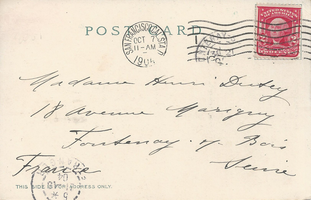 POST CARD
SAN FRANCISCO, CAL. STA. D
OCT 7
11-AM
190
Madame Henri Dubey
18 Avenue Marigny
Fontenay s/ Bois
Seine
France
THIS SIDE FOR ADDRESS ONLY.